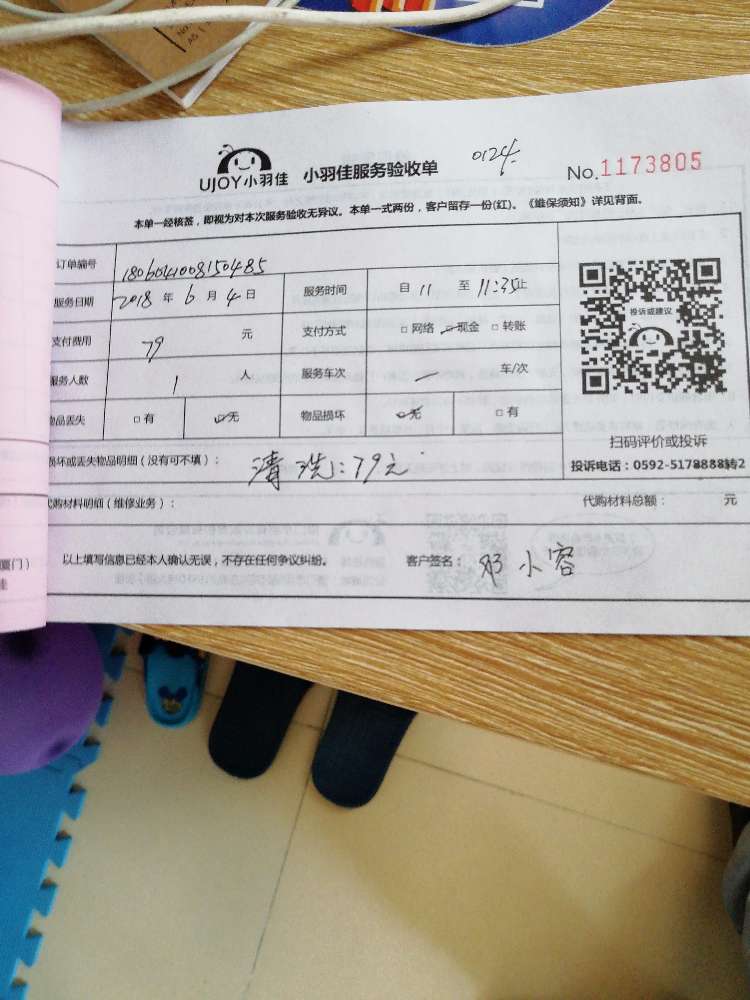 UJOY小羽佳 小羽佳服务验收单 0124 No.1173805
本单一经核签，即视为对本次服务验收无异议。本单一式两份，客户留存一份(红)。《维保须知》详见背面。
订单编号 1806041008150485
服务日期 2018 年 6 月 4 日 服务时间 自 11 至 11:35止
支付费用 79 元 支付方式 □ 网络 □ 现金 □ 转账
服务人数 1 人 服务车次 车/次
物品丢失 □ 有 □ 无 物品损坏 □ 无 □ 有
损坏或丢失物品明细（没有可不填）： 清洗：79元
代购材料明细（维修业务）： 代购材料总额： 元
以上填写信息已经本人确认无误，不存在任何争议纠纷。 客户签名： 邓小容
投诉或建议
扫码评价或投诉
投诉电话：0592-5178888转2
厦门）